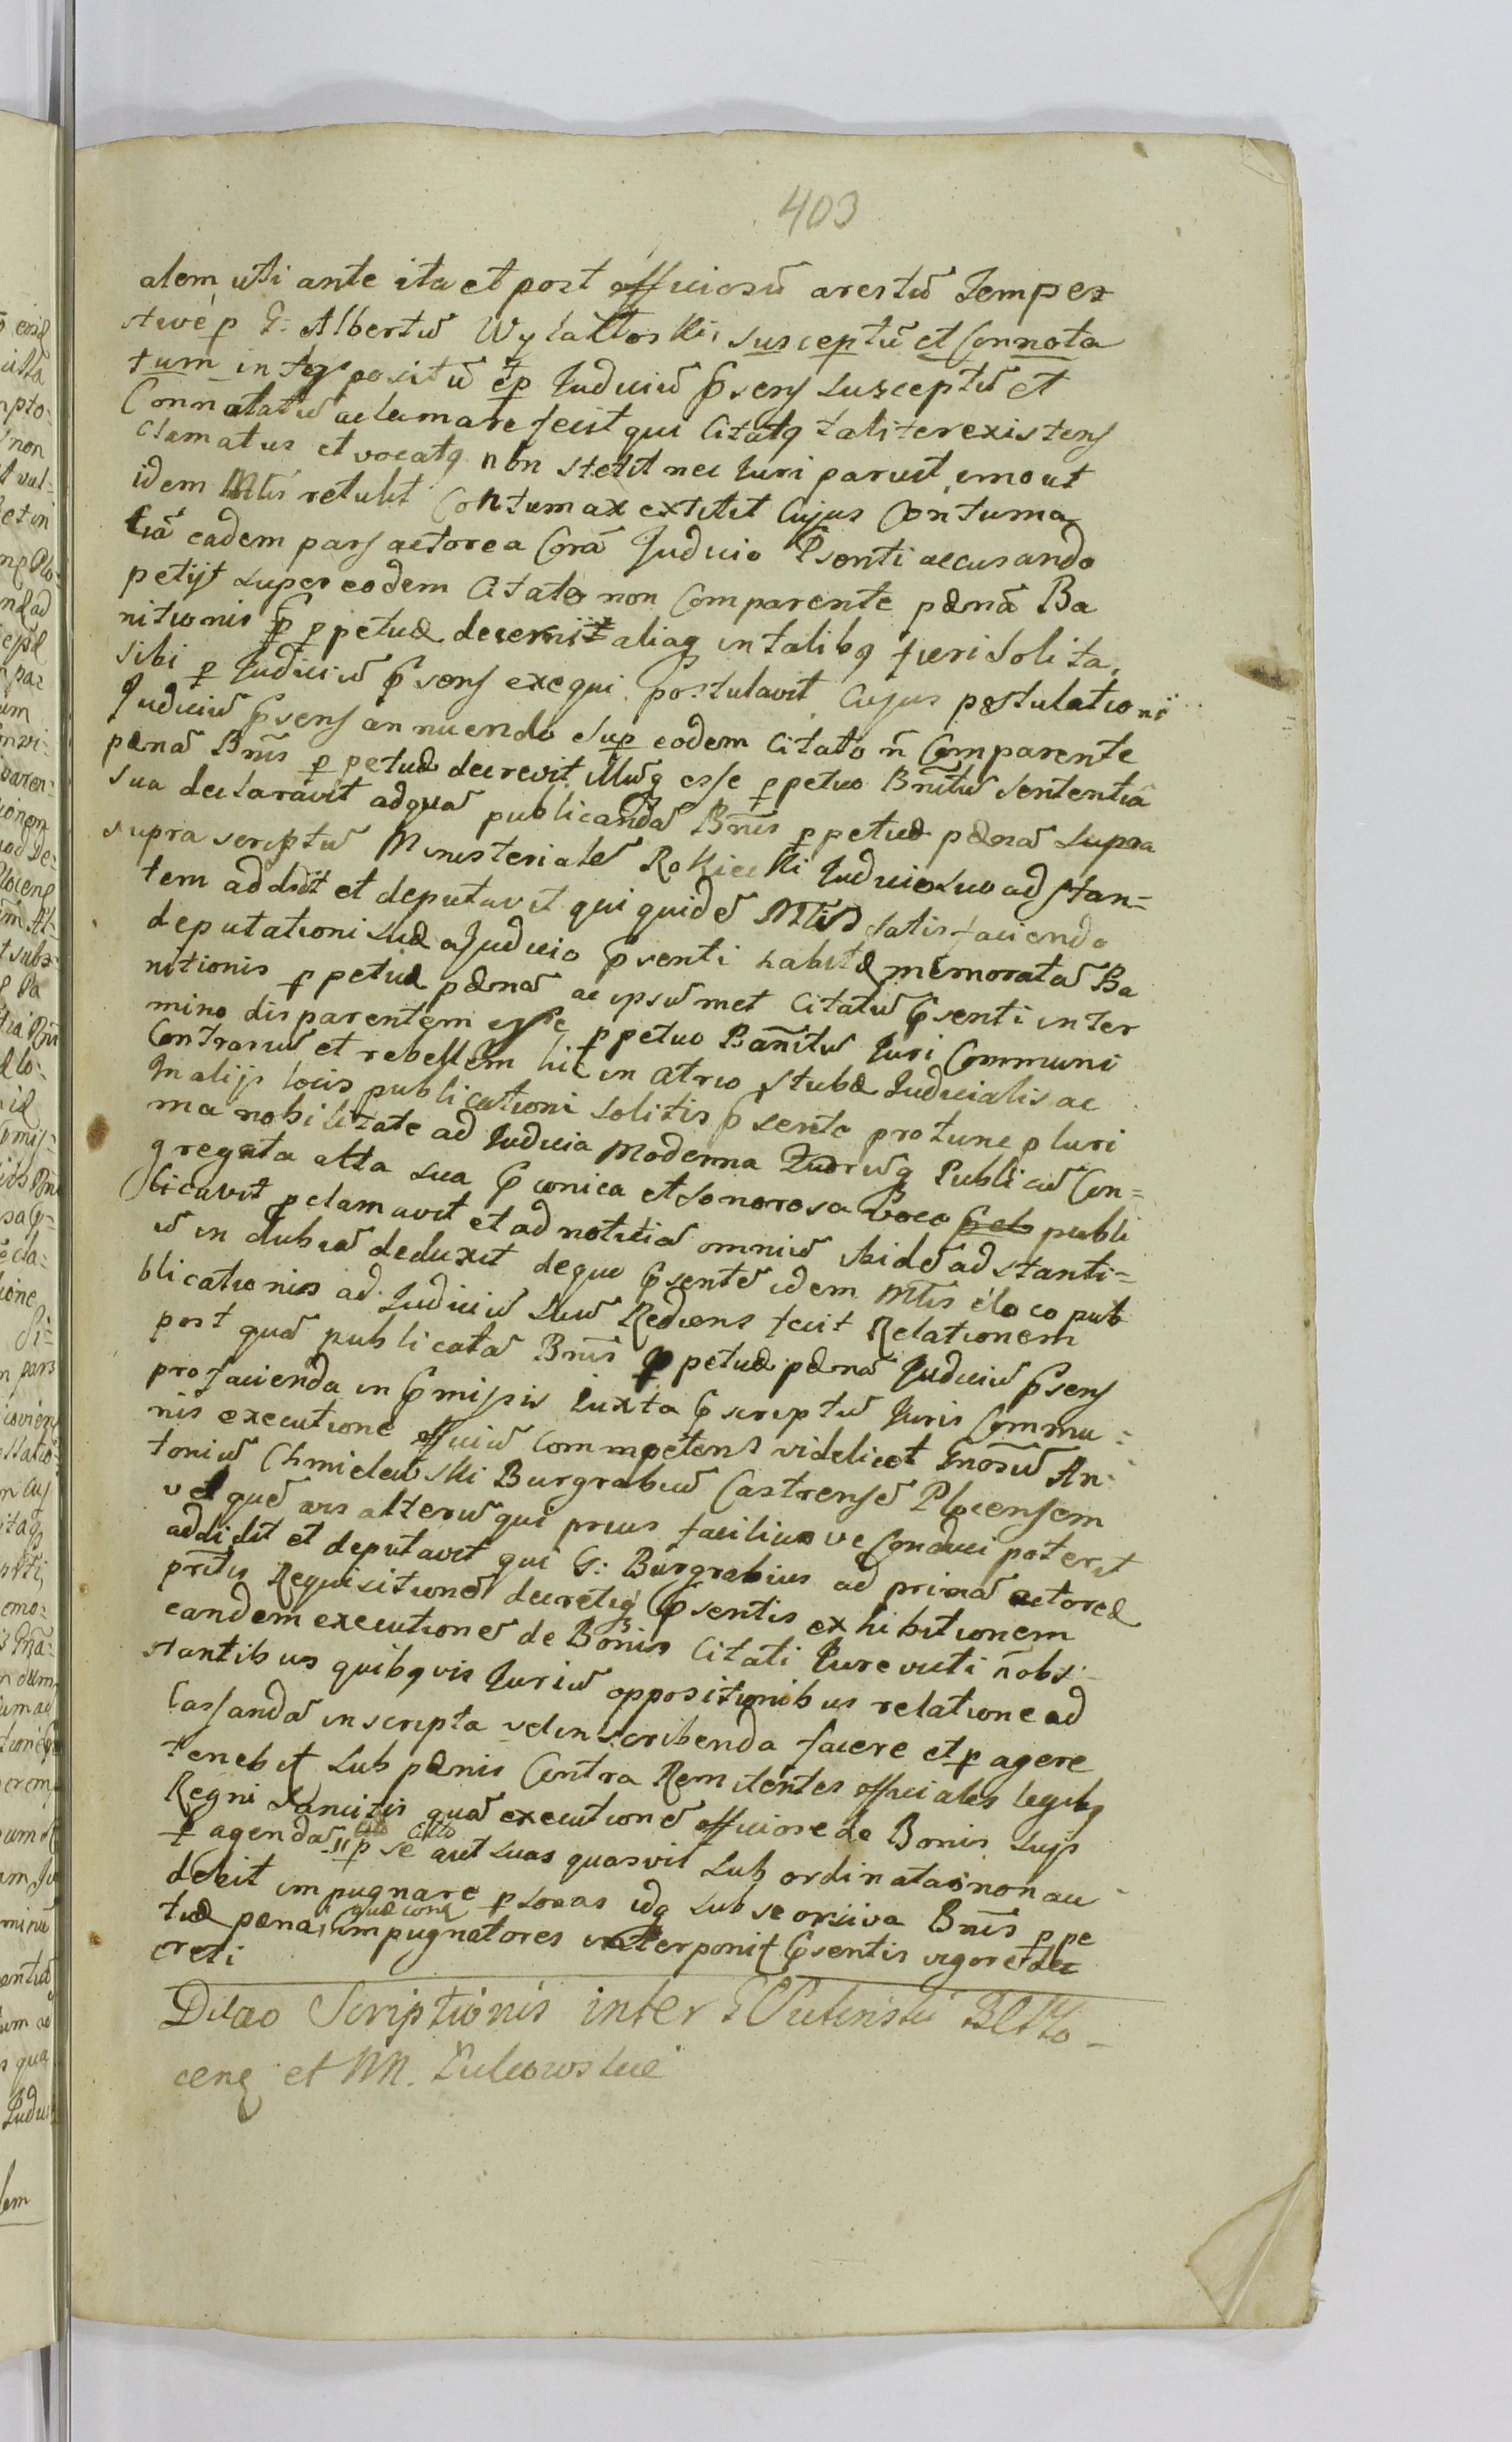 403
alem uti ante ita et post officiosū arestū Tempes
stivè p G: Albertū Wylattoski susceptū et Connota
tum interpositū et p Judiciū Psens susceptū et
Connotatū aclamare fecit qui Citatq taliter existens
clamatus et vocatq non stetit nec Juri paruit, imo ut
idem Mtis retulit Contumax extitit Cujus Contuma
ciā eadem pars actorea Corā Judicio Psenti accusando
petijt super eodem Citato non Comparente pœnā Ba
nitionis p ppetuæ decerni aliaq in talibq fieri solita,
sibi p Judiciū Psens exequi postulavit, Cujus postulationi
Judiciū Psens annuendo sup eodem Citato n̄ Comparente
pœnā Bnis ppetuæ decrevit, Illūq esse ppetuo Bnitū sententiā
sua declaravit ad quā publicandā Bnis ppetuæ pœnā supra
supra scriptū Ministerialē Rokicki Judicio suo ad stan=
tem addidit et deputavit qui quidē Mtis satisfaciendo
deputationi suæ a Judicio Psenti habitæ memoratā Ba
nitionis ppetuæ pœnā ac ipsūmet Citatū Psenti in ter
mino disparentem esse ppetuo Banitū Juri Communi
Contrariū et rebellem hic in atrio stubæ Judicialis ac
In alijs locis publicationi solitis Psente pro tunc pluri
ma nobilitate ad Judicia moderna Publicū Con=
gregata alta sua Pconica et sonorosa Voce publi
licavit pclamavit et ad notitiā omniū ibidē ad stanti=
ū in dubiā deduxit de quo Psente idem Mtis è loco pub
blicationis ad Judiciū suū Rediens fecit Relationem
post quā publicatā Bnis ppetuæ pœnā Judiciū Psens
pro facienda in Pmissis iuxta Pscriptū Juris Commu=
nis executione officiū commpetens videlicet Gnosū An=
toniū Chmielewski Burgrabiū Castrensē Plocensem
vel quē vis alterū qui prius facilius ve Conduci poterit
addidit et deputavit qui G: Burgrabius ad primā actoreæ
prtis Requisitionē decretiq Psentis exhibitionem
eandem executionē de Bonis Citati Jure victi n̄ obs=
stantibus quibqvis Juriū oppositionibus relatione ad
Cassandā inscripta vel inscribenda facere et p agere
tenebit sub pœnis Contra Remitentes officiales legibq
Regni sancitis quā executionē officiose de Bonis sujs
p agendā citto p se aut suas quasvis sub ordinatas non au=
debit impugnare psonas idq sub seorsiva Bnis ppe
tuæ pœna quæ conq impugnatores interponit Psentis vigore dec
creti
Dilao Scriptionis inter
cenq et MM.